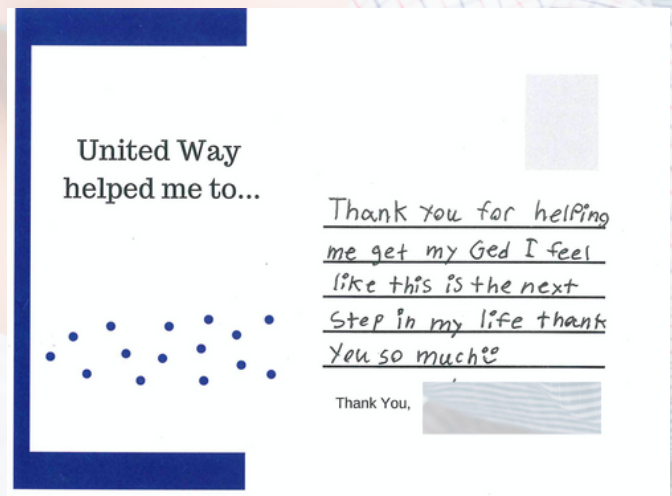 United Way
helped me to...
Thank you for helping
me get my Ged I feel
like this is the next
step in my life thank
you so much
Thank You,